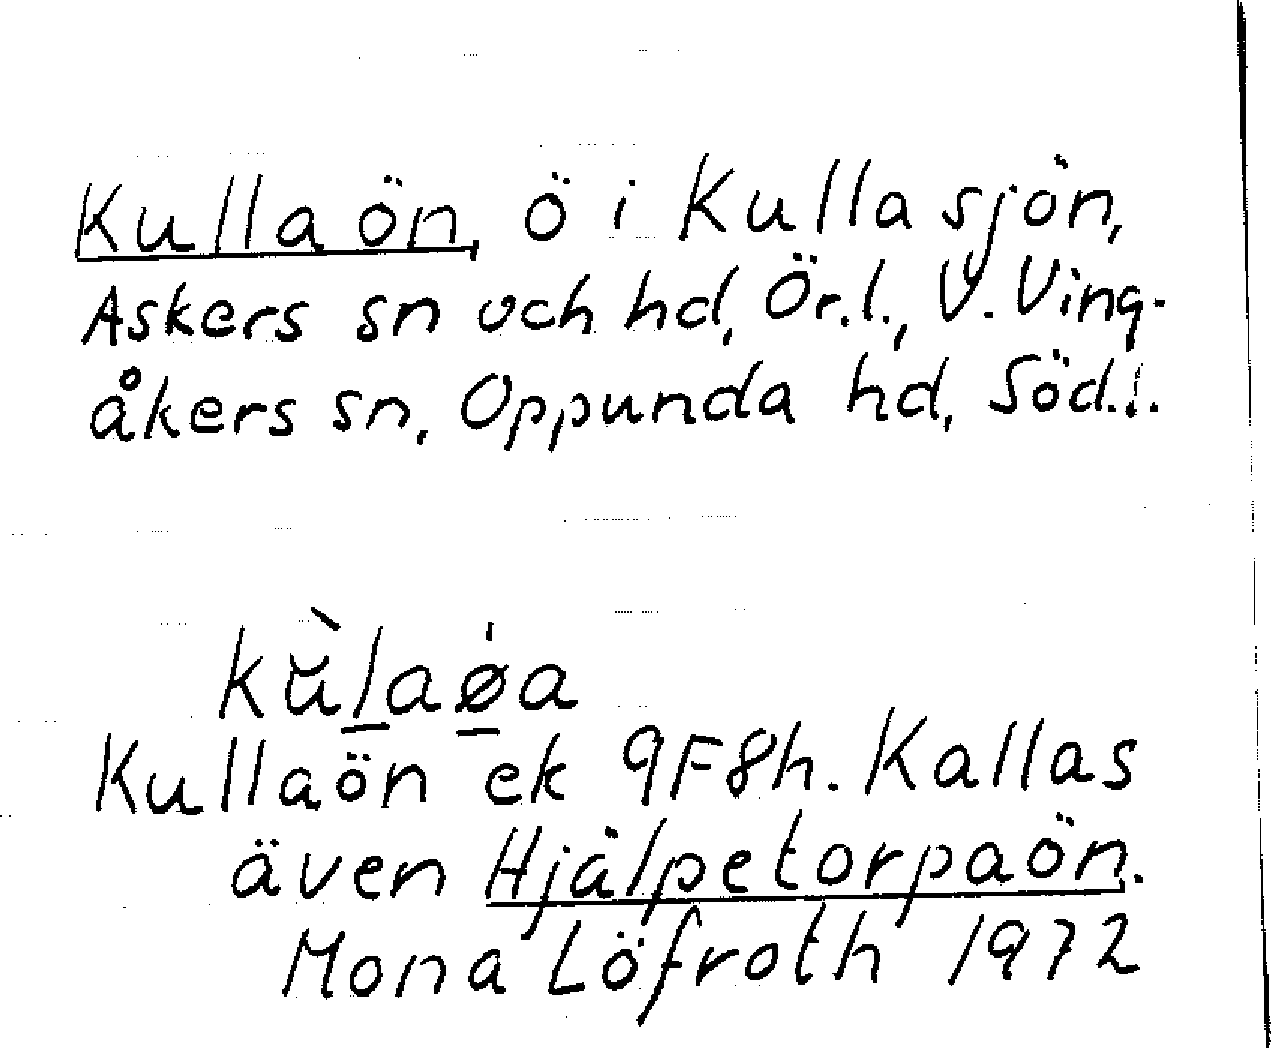 Kullaön, ö i Kullasjön,
Askers sn och hd, Ör.l., V. Ving-
åkers sn, Oppunda hd, Söd.l.
kŭ̀l̠aø̠̍a
Kullaön ek 9F8h. Kallas
även Hjälpetorpaön.
Mona Löfroth 1972